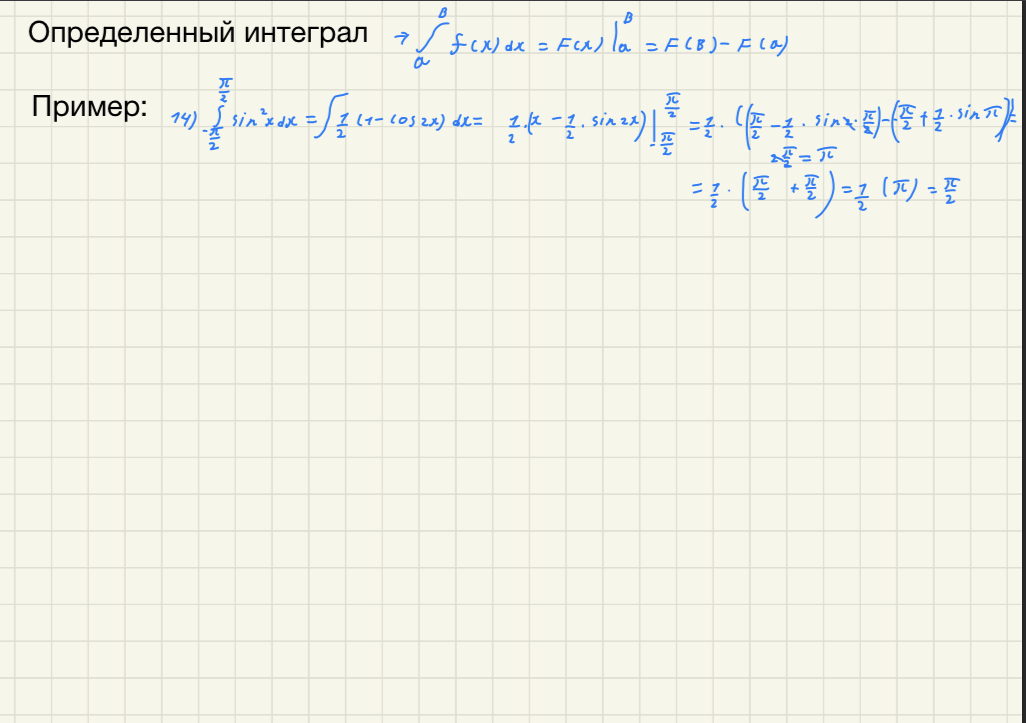 Определенный интеграл → ∫_a^B f(x) dx = F(x) |_a^B = F(B) - F(a)
Пример: 14) ∫_{-π/2}^{π/2} sin²x dx = ∫ 1/2 (1 - cos 2x) dx = 1/2 · (x - 1/2 · sin 2x) |_{-π/2}^{π/2} = 1/2 · ((π/2 - 1/2 · sin 2 · π/2) - (-π/2 + 1/2 · sin π)) =
2 · π/2 = π
= 1/2 · (π/2 + π/2) = 1/2 (π) = π/2